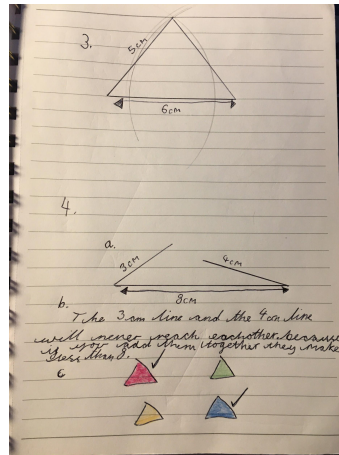 3.
5cm
6cm
4.
a.
3cm
4cm
8cm
b.
The 3cm line and the 4cm line
will never reach eachother because
if you add them together they make
less than 8.
c